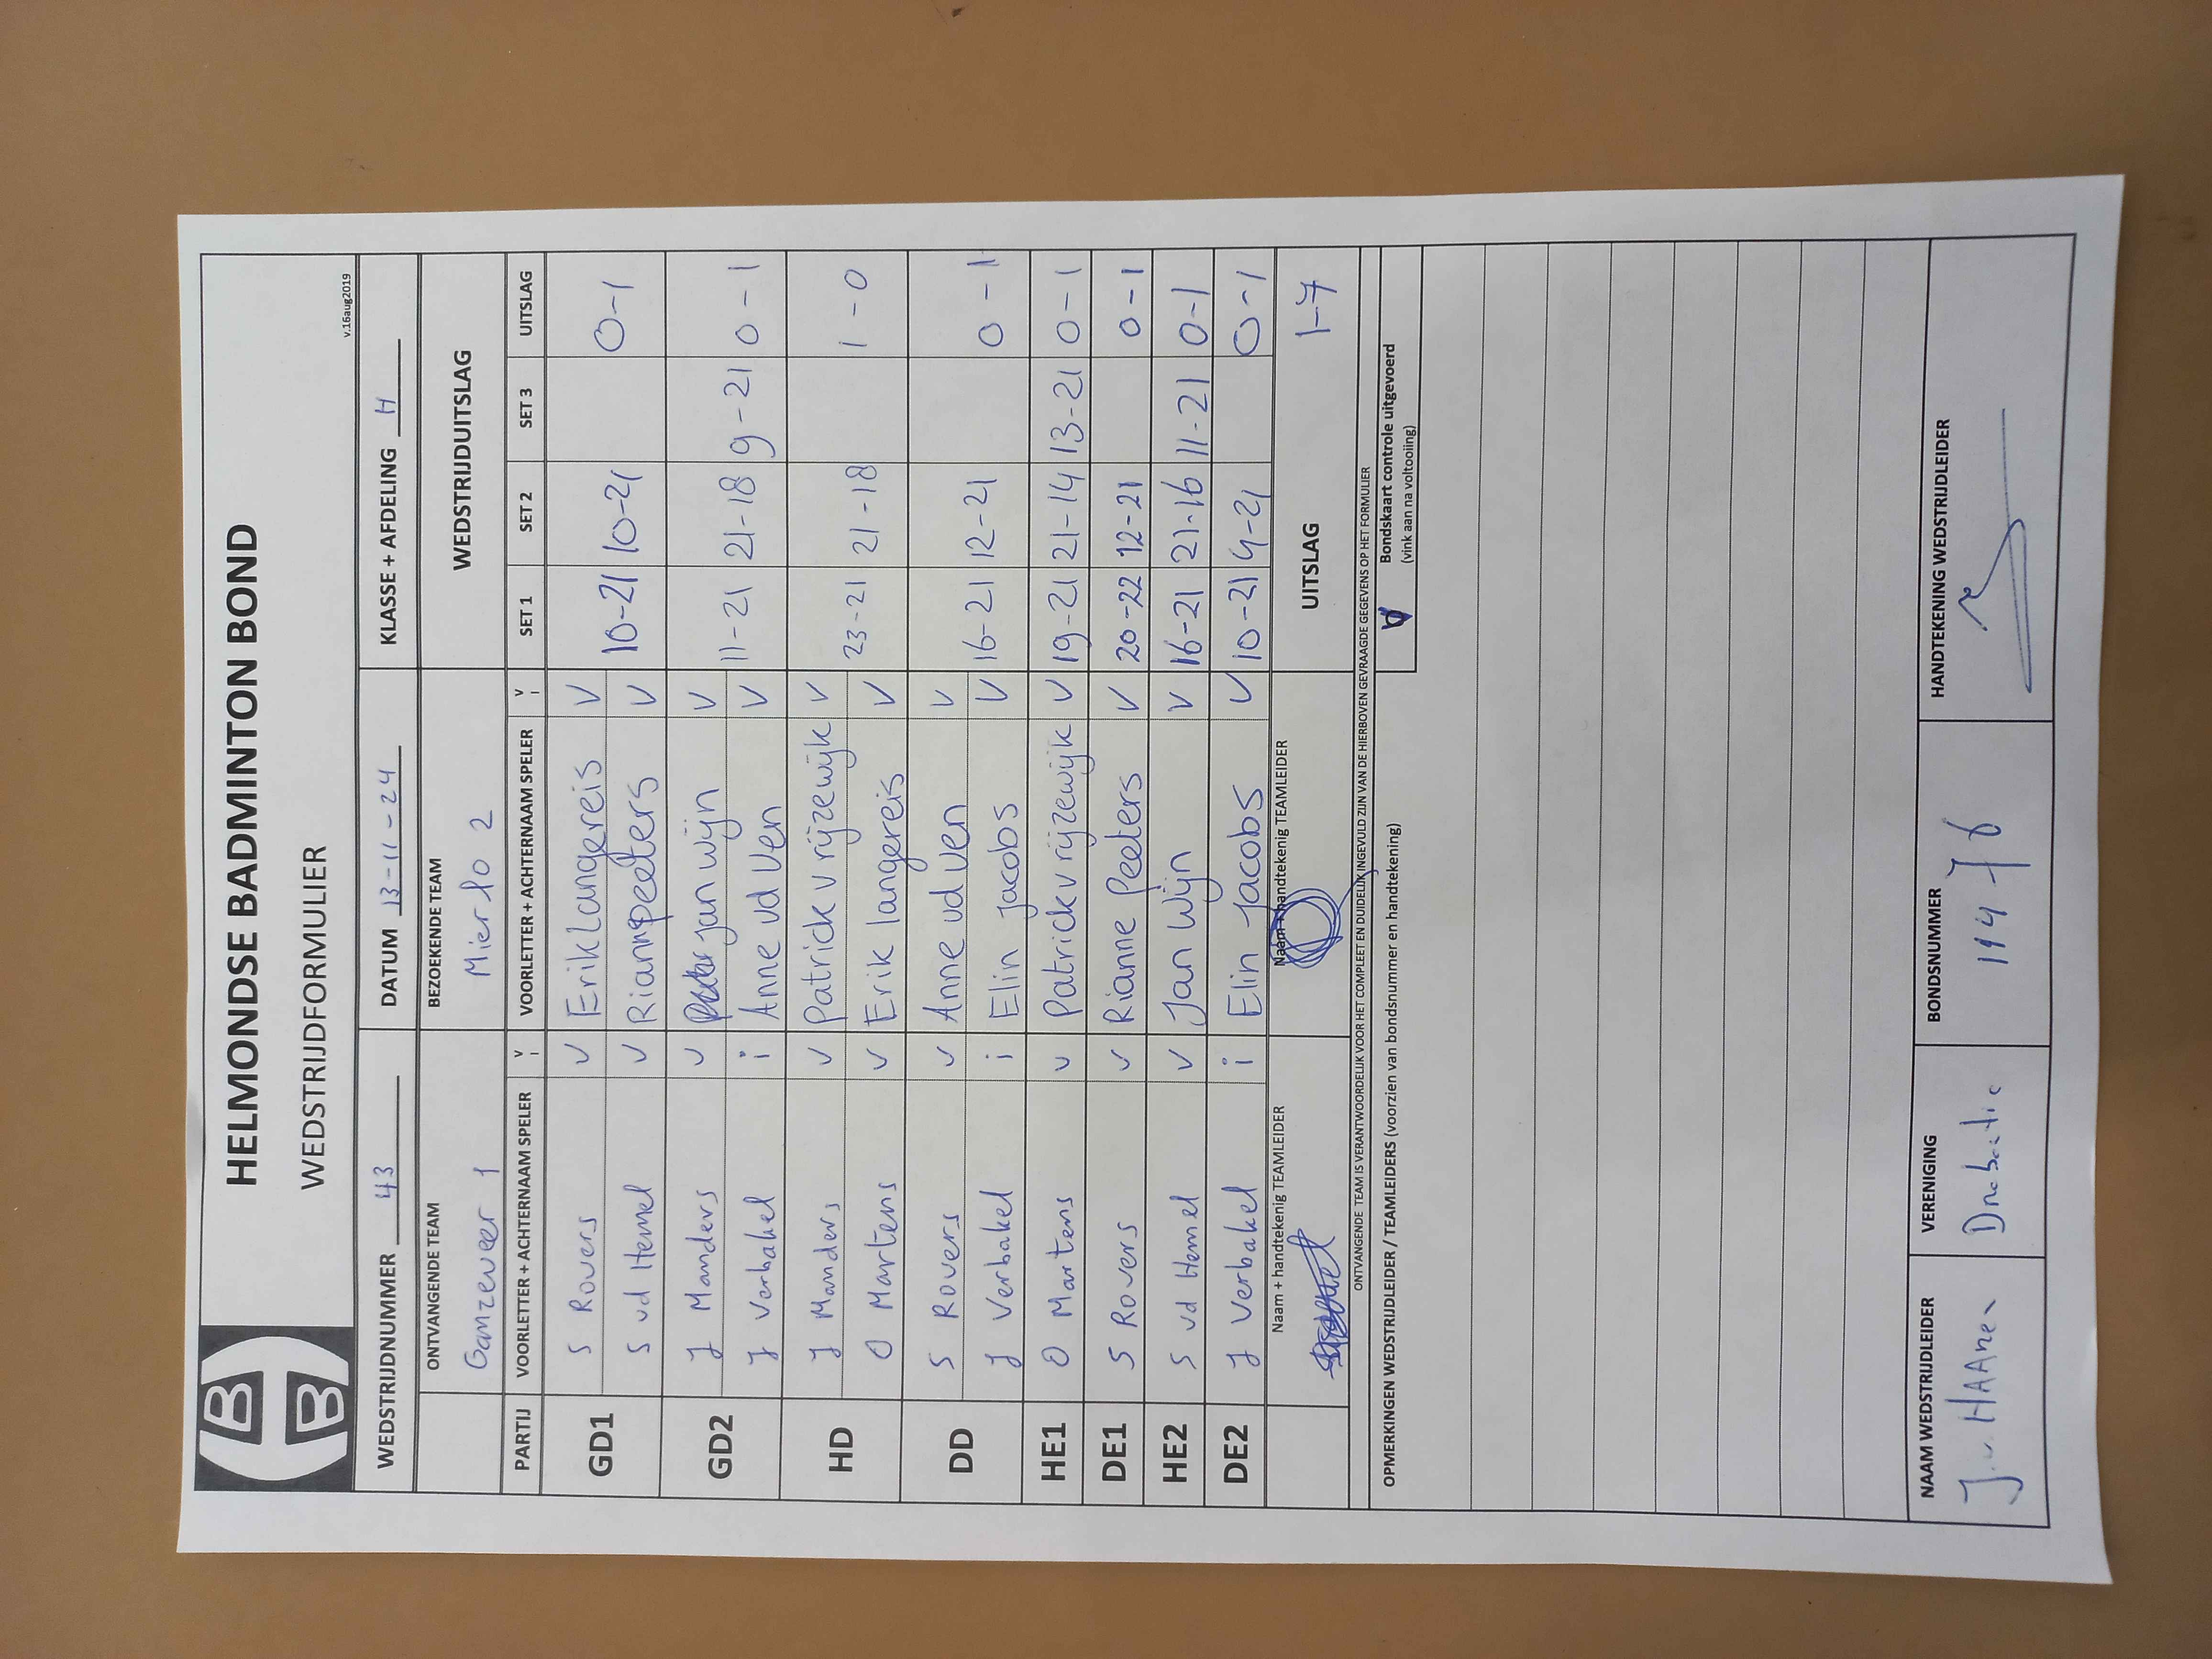 HELMONDSE BADMINTON BOND
WEDSTRIJDFORMULIER
v.16aug2019
WEDSTRIJDNUMMER 43 DATUM 13-11-24 KLASSE + AFDELING H
ONTVANGENDE TEAM BEZOEKENDE TEAM WEDSTRIJDUITSLAG
Ganzeveer 1 Mierlo 2
PARTIJ VOORLETTER + ACHTERNAAM SPELER V I VOORLETTER + ACHTERNAAM SPELER V I SET 1 SET 2 SET 3 UITSLAG
GD1 S Rovers V Erik Langereis V
S vd Hemel V Rianne peeters V 10-21 10-21 0-1
GD2 J Manders V jan wijn V
J Verbakel i Anne vd Ven V 11-21 21-18 9-21 0-1
HD J Manders V Patrick vrijzewijk V
O Martens V Erik langereis V 23-21 21-18 1-0
DD S Rovers V Anne vd ven V
J Verbakel i Elin jacobs V 16-21 12-21 0-1
HE1 O Martens V Patrick vrijzewijk V 19-21 21-14 13-21 0-1
DE1 S Rovers V Rianne Peeters V 20-22 12-21 0-1
HE2 S vd Hemel V Jan Wijn V 16-21 21-16 11-21 0-1
DE2 J Verbakel i Elin Jacobs V 10-21 4-21 0-1
Naam + handtekenig TEAMLEIDER Naam + handtekenig TEAMLEIDER UITSLAG 1-7
ONTVANGENDE TEAM IS VERANTWOORDELIJK VOOR HET COMPLEET EN DUIDELIJK INGEVULD ZIJN VAN DE HIERBOVEN GEVRAAGDE GEGEVENS OP HET FORMULIER
OPMERKINGEN WEDSTRIJDLEIDER / TEAMLEIDERS (voorzien van bondsnummer en handtekening) V Bondskaart controle uitgevoerd
(vink aan na voltooiing)
NAAM WEDSTRIJDLEIDER VERENIGING BONDSNUMMER HANDTEKENING WEDSTRIJDLEIDER
J.v. HAAnen 11476